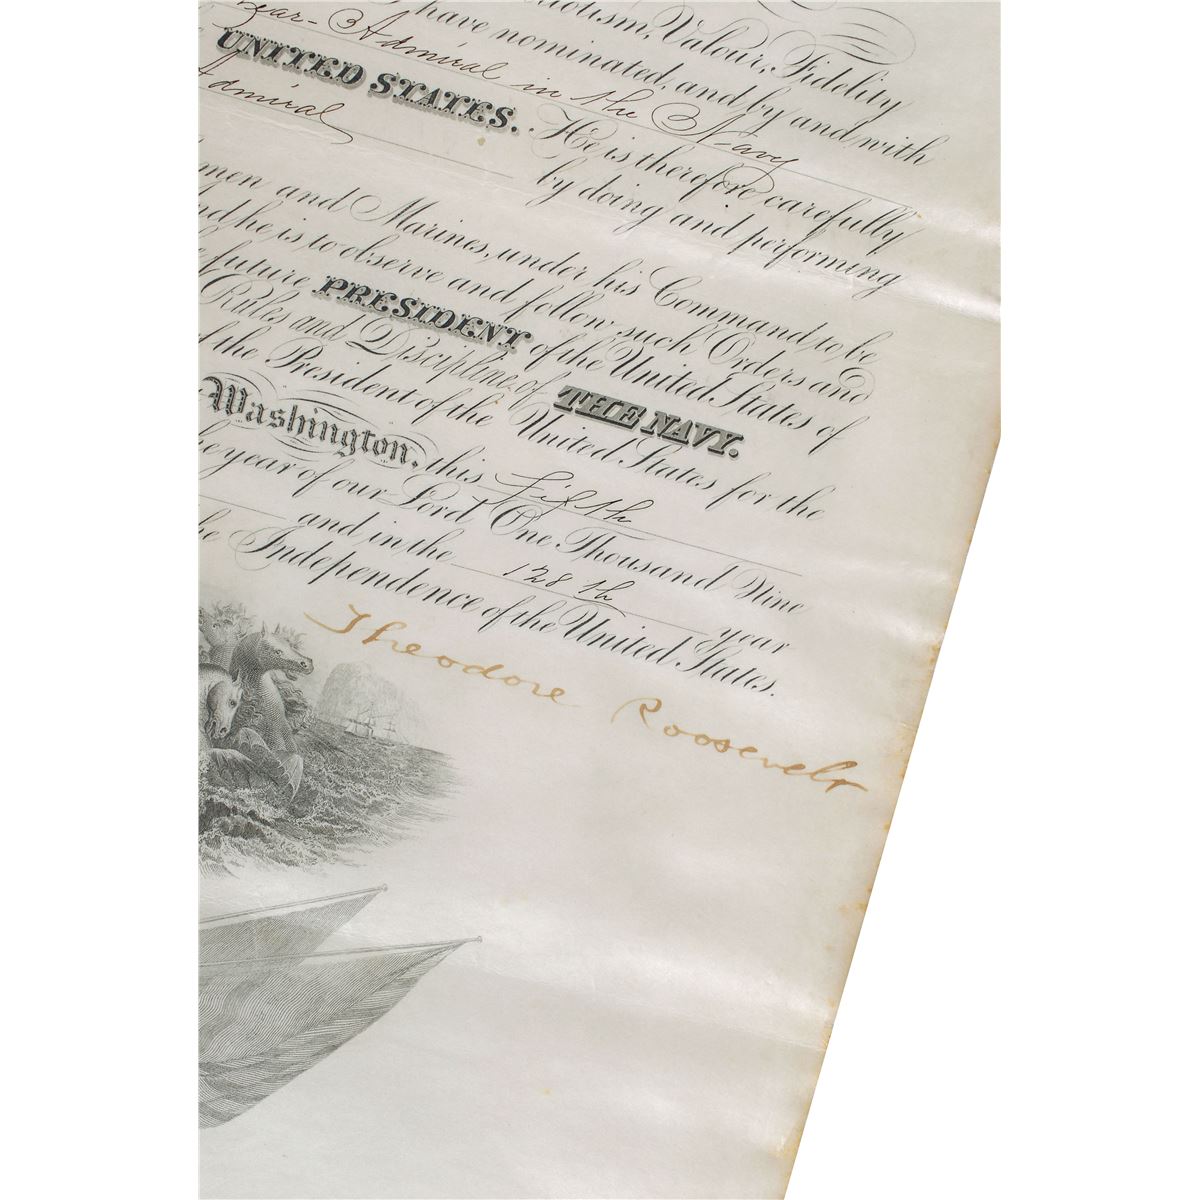 Valour, Fidelity
have nominated, and by and with
Rear-Admiral in the Navy
UNITED STATES. He is therefore carefully
Admiral by doing and performing
men and Marines, under his Command to be
he is to observe and follow such Orders and
future PRESIDENT of the United States of
Rules and Discipline of THE NAVY.
the President of the United States for the
Washington, this Fifth
year of our Lord One Thousand Nine
and in the 128th year
Independence of the United States.
Theodore Roosevelt